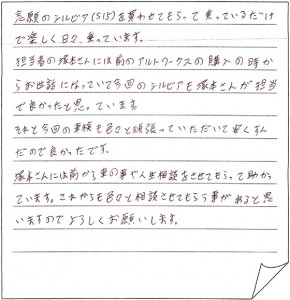 念願のシルビア(S15)を買わせてもらって乗っているだけ
で楽しく日々乗っています。
担当者の塚本さんには前のアルトワークスの購入の時か
らお世話になっていて今回のシルビアも塚本さんが担当
で良かったと思っています。
それと今回の車検も色々と頑張っていただいて安くすん
だので良かったです。
塚本さんには前から車の事や人生相談をさせてもらって助かっ
ています。これからも色々と相談させてもらう事があると思
いますのでよろしくお願いします。